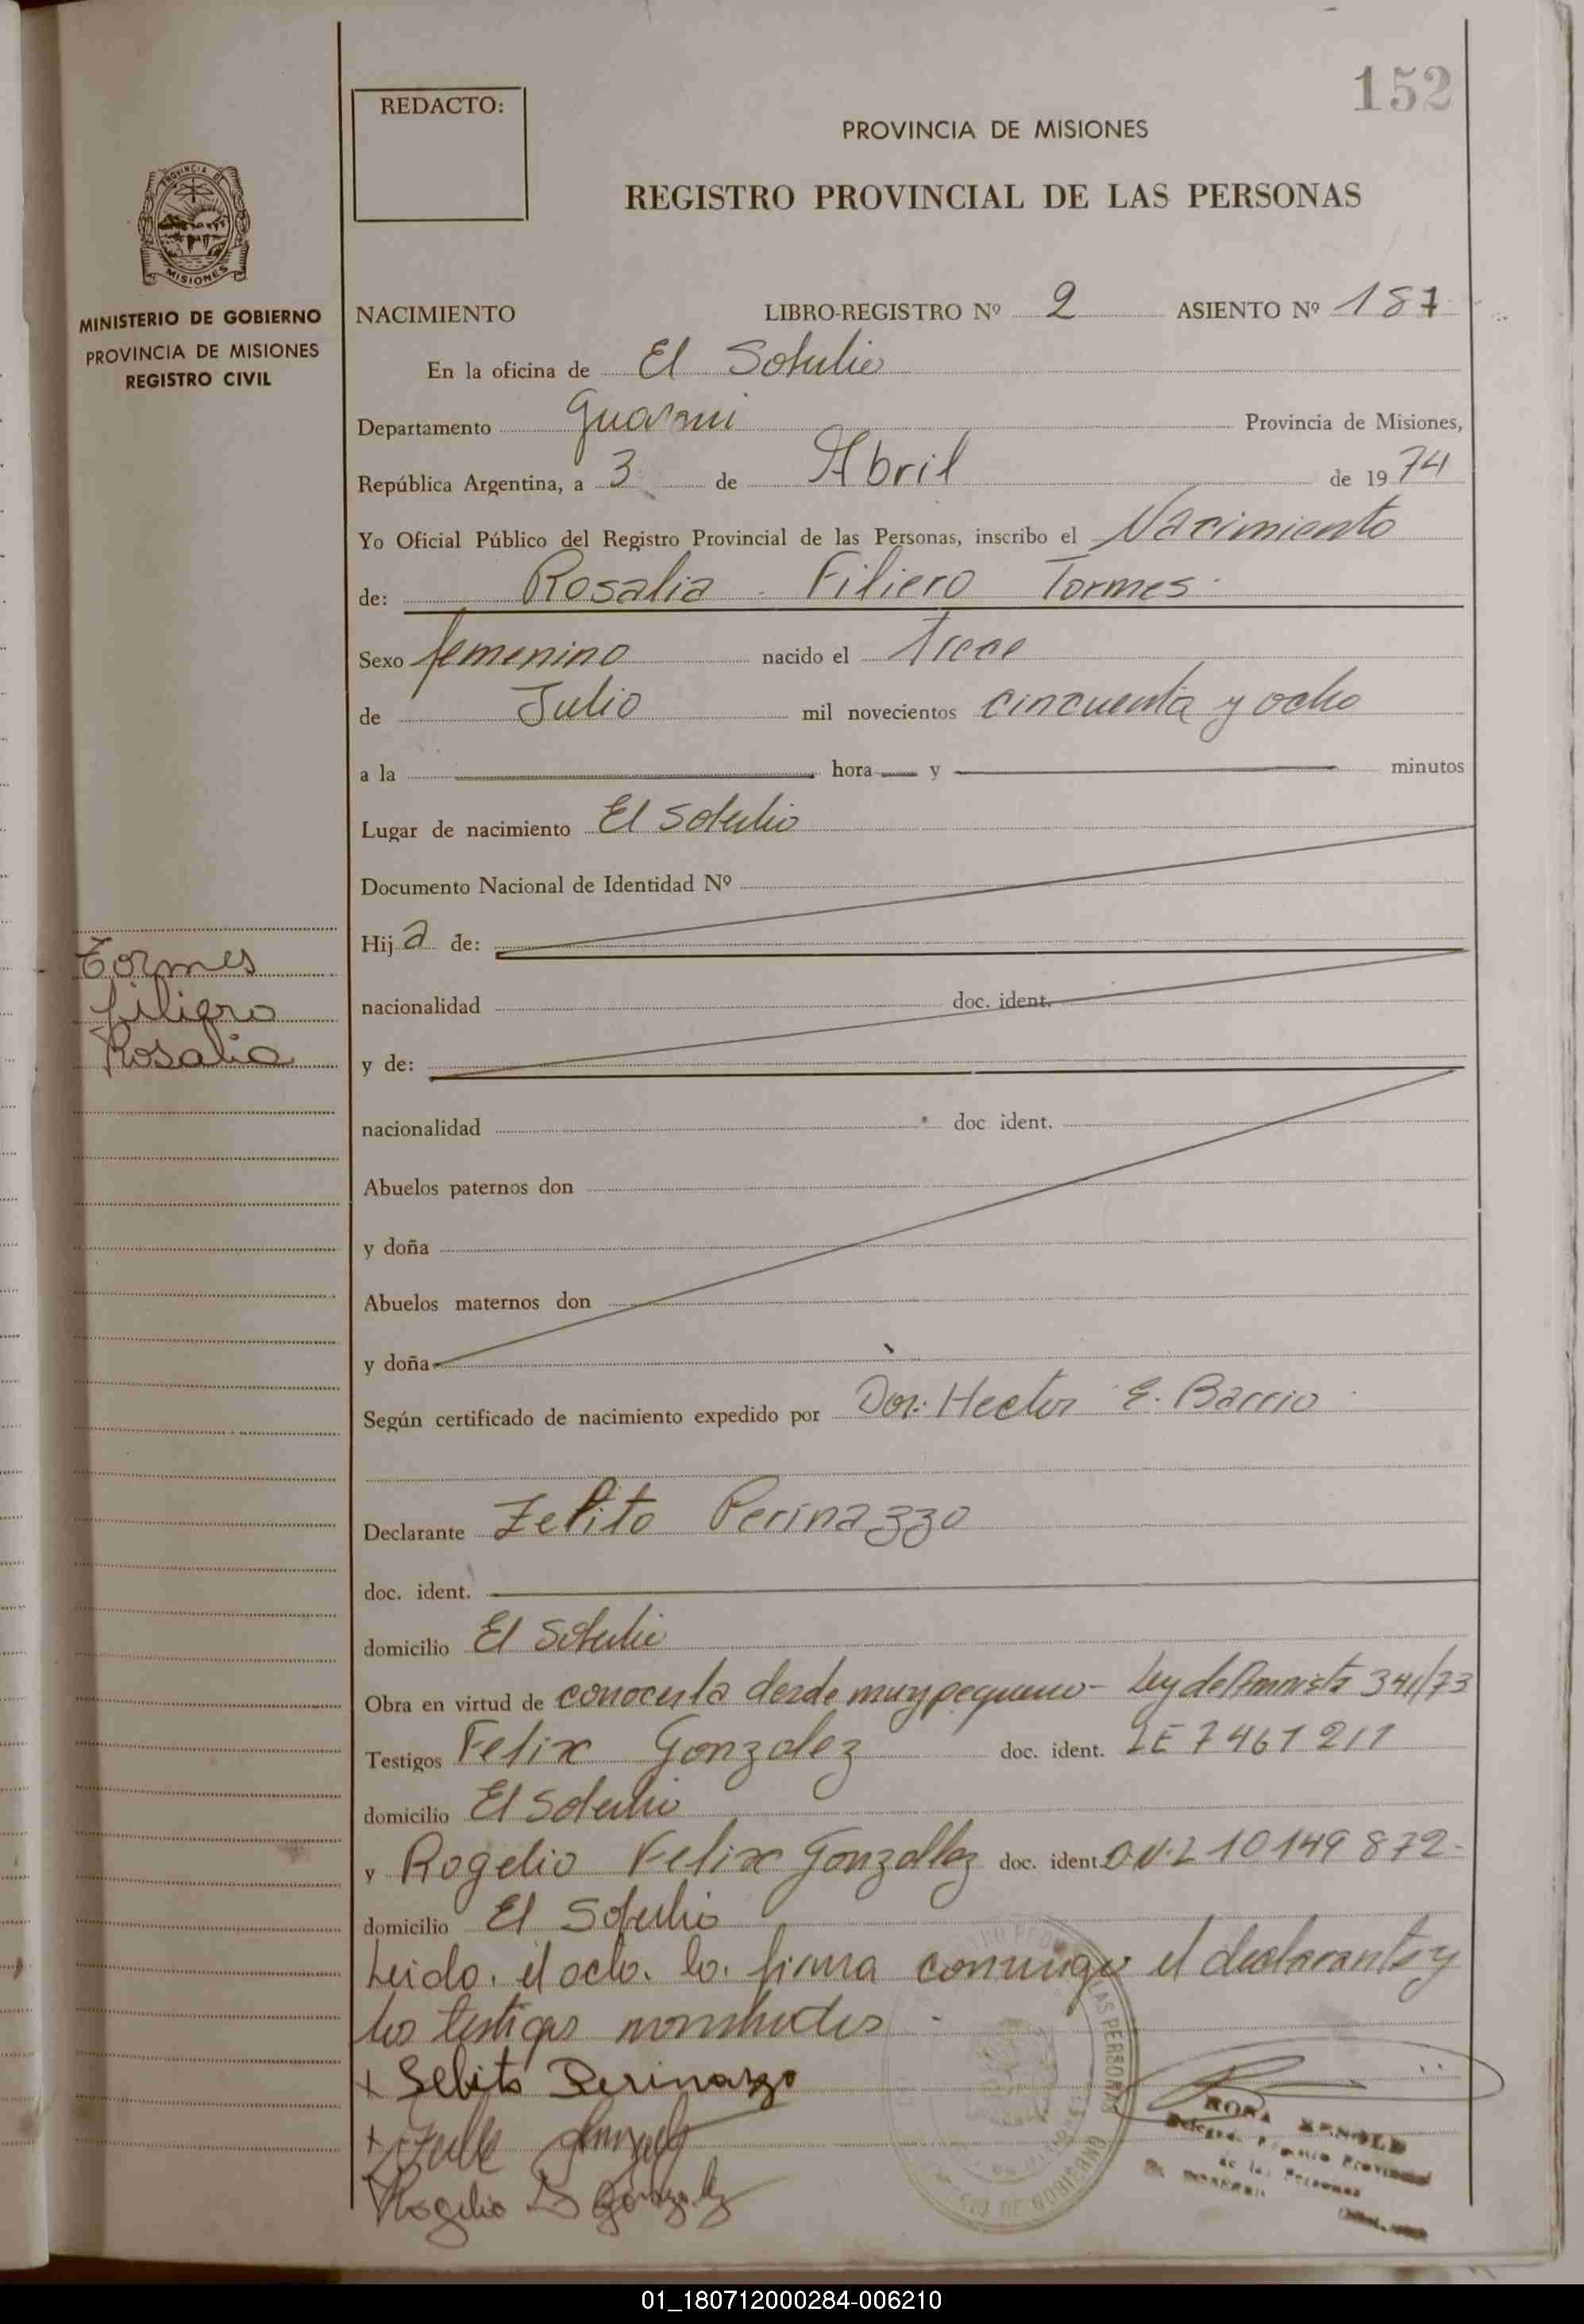 152
REDACTO:
PROVINCIA DE MISIONES
REGISTRO PROVINCIAL DE LAS PERSONAS
PROVINCIA DE
MISIONES
MINISTERIO DE GOBIERNO
PROVINCIA DE MISIONES
REGISTRO CIVIL
NACIMIENTO LIBRO-REGISTRO Nº 2 ASIENTO Nº 187
En la oficina de El Soberbio
Departamento Guarani Provincia de Misiones,
República Argentina, a 3 de Abril de 1974
Yo Oficial Público del Registro Provincial de las Personas, inscribo el Nacimiento
de: Rosalia Filiero Tormes
Sexo femenino nacido el Trece
de Julio mil novecientos cincuenta y ocho
a la hora y minutos
Lugar de nacimiento El Soberbio
Documento Nacional de Identidad Nº
Hija de:
Tormes
filiero
Rosalia
nacionalidad doc. ident.
y de:
nacionalidad doc ident.
Abuelos paternos don
y doña
Abuelos maternos don
y doña
Según certificado de nacimiento expedido por Dor: Hector E. Barrio
Declarante Zelito Perinazzo
doc. ident.
domicilio El Soberbio
Obra en virtud de conocerla desde muy pequeño - Ley de Amnistia 341/73
Testigos Felix Gonzalez doc. ident. LE 7461211
domicilio El Soberbio
y Rogelio Felix Gonzallez doc. ident. 10149872-
domicilio El Soberbio
Leido. el acto. lo. firma conmigo el declarante y
los testigos nombrados
+ Selito Perinazzo
Rogelio Gonzalez
DE LAS PERSONAS
01_180712000284-006210